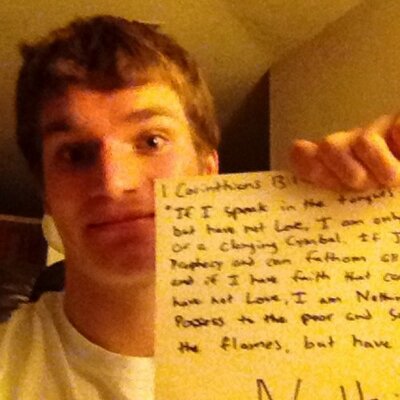 1 Corinthians 13:1
"If I speak in the tongues
but have not Love, I am only
or a clanging Cymbal. If I
Prophecy and can fathom all
and if I have faith that can
have not Love, I am Nothing
Possess to the poor and
the flames, but have